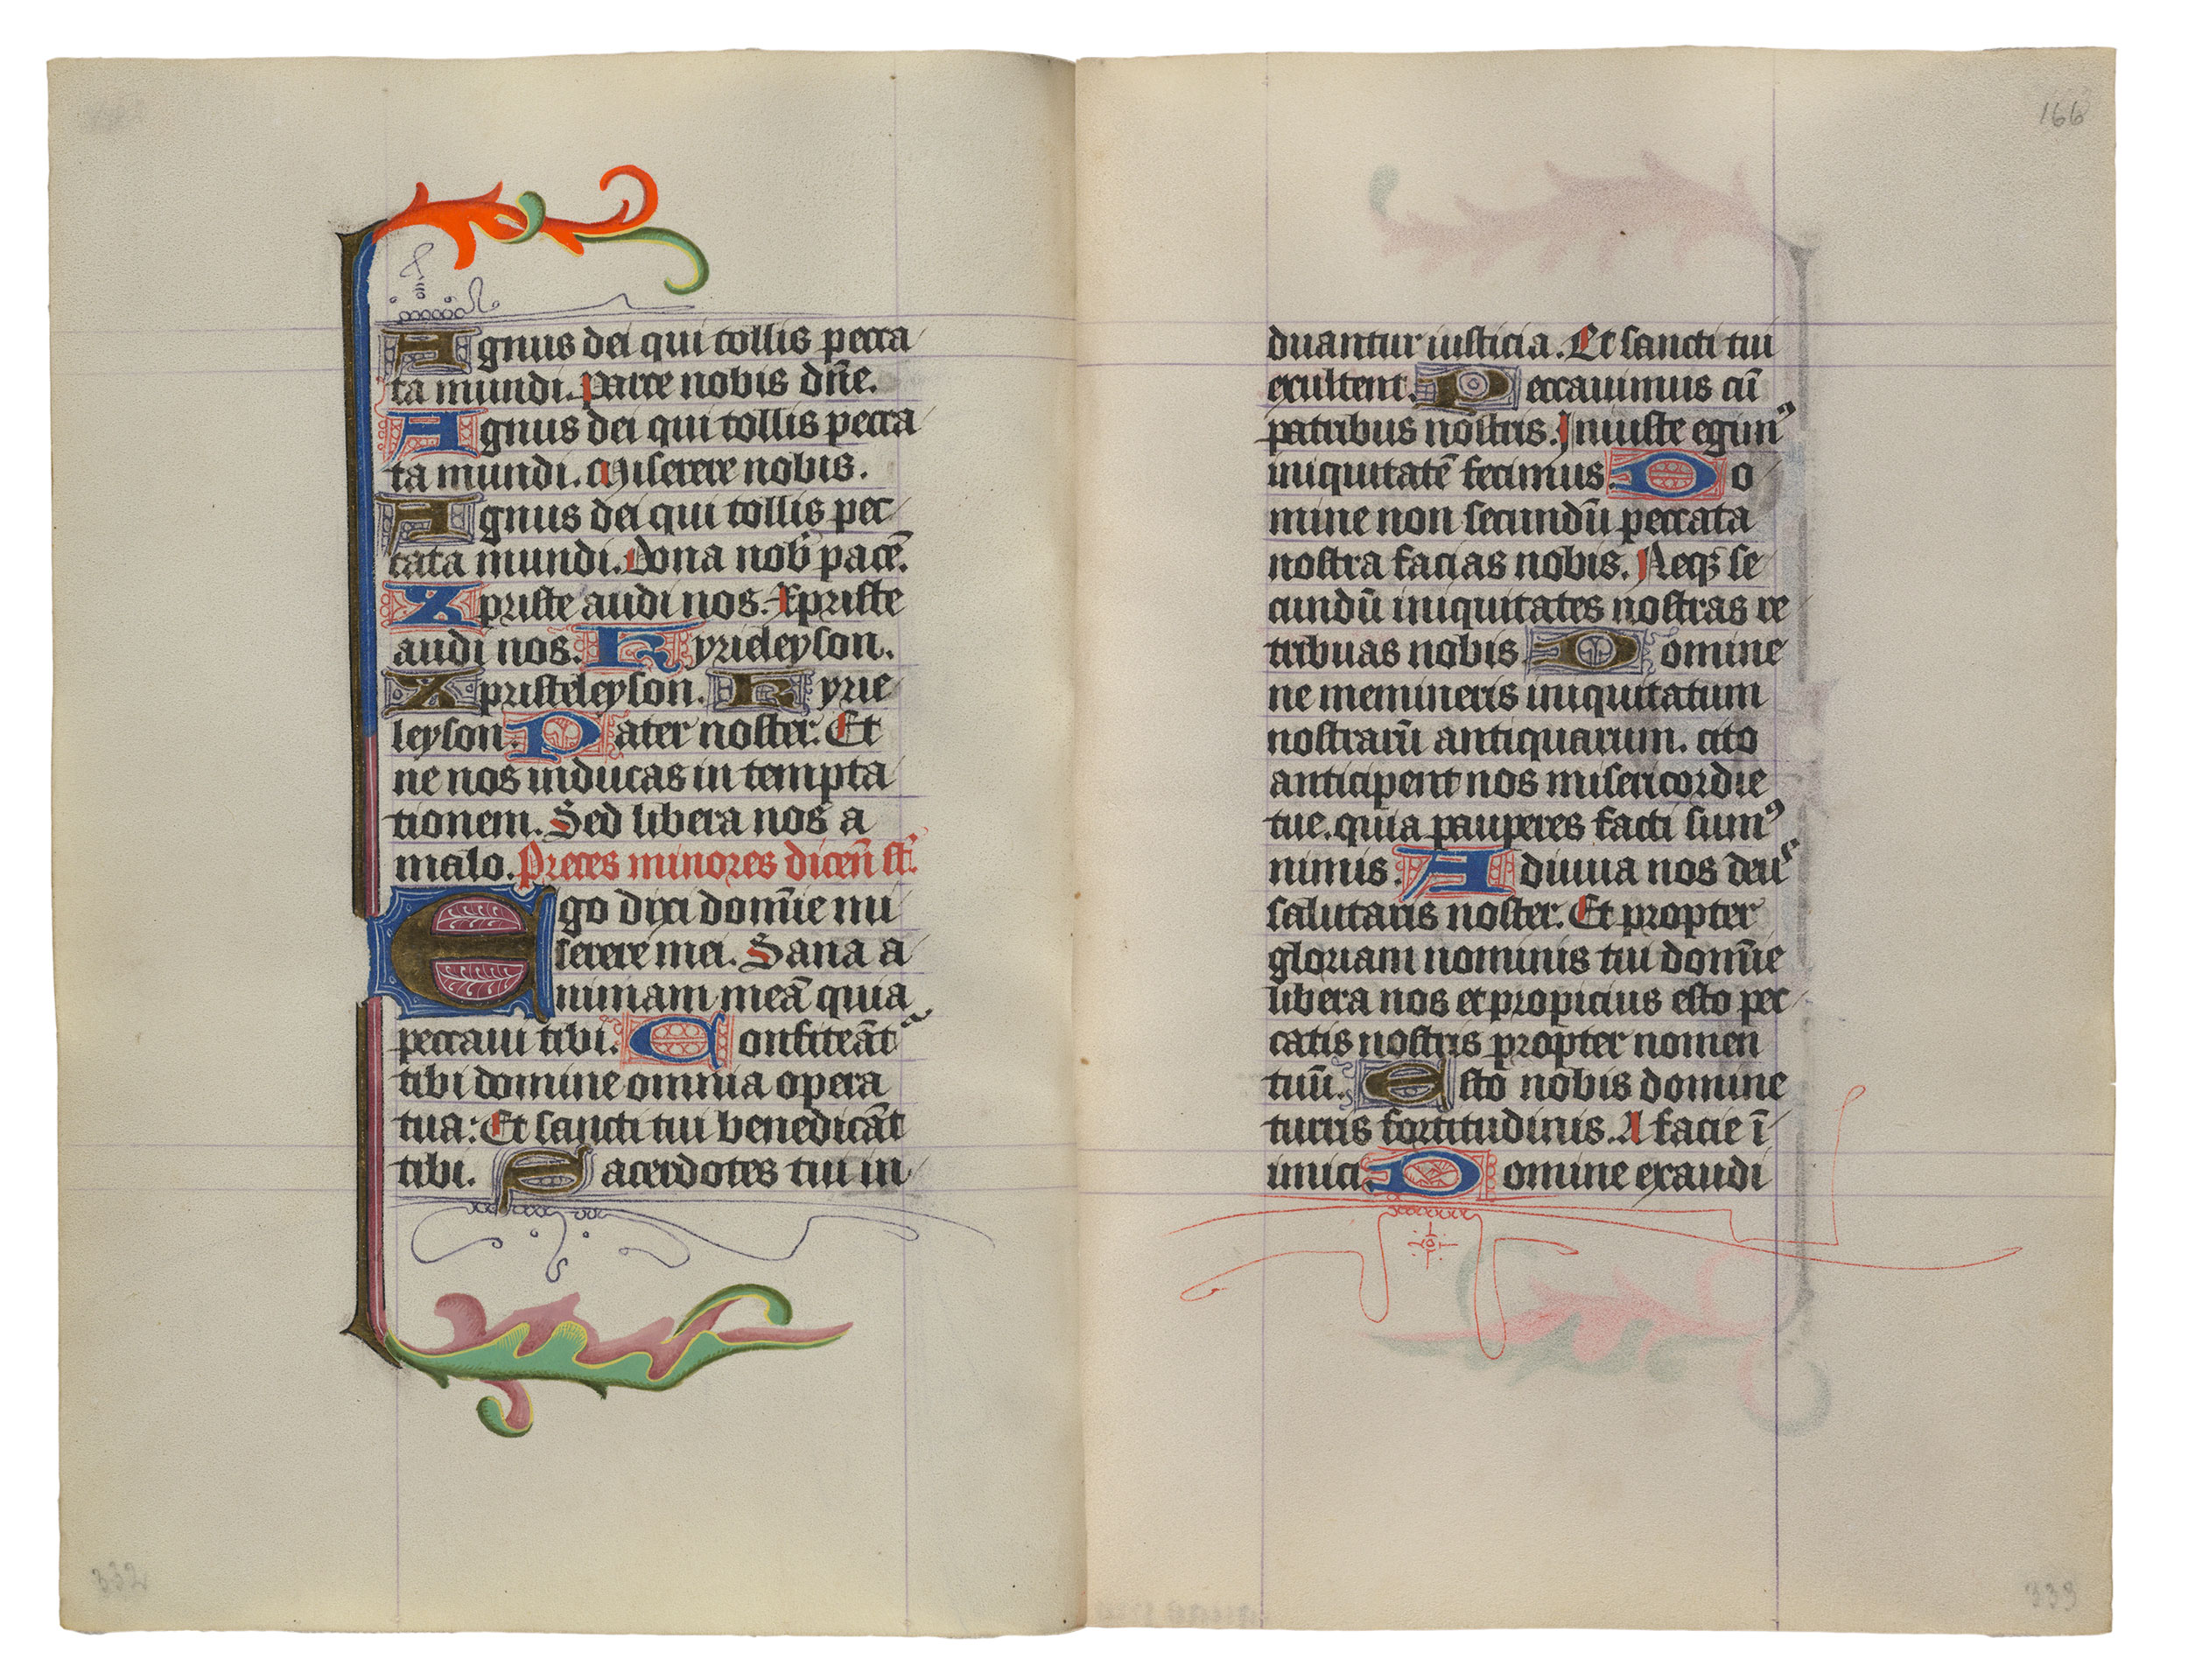 Agnus dei qui tollis pecca
ta mundi. Parce nobis dn̄e.
Agnus dei qui tollis pecca
ta mundi. Miserere nobis.
Agnus dei qui tollis pec
cata mundi. Dona nob̄ pacē.
Xpriste audi nos. Xpriste
audi nos. Kyrieleyson.
Xpristeleyson. Kyrie
leyson. Pater noster. Et
ne nos inducas in tempta
tionem. Sed libera nos a
malo. Preces minores dicen̄ st̄.
Ego dixi domīe mi
serere mei. Sana a
nimam meā quia
peccaui tibi. Confiteāt᷑
tibi domine omnia opera
tua: Et sancti tui benedicāt
tibi. Sacerdotes tui in
332
166
duantur iusticia. Et sancti tui
exultent. Peccauimus cū
patribus nostris. Iniuste egimꝰ
iniquitatē fecimus. Do
mine non secundū peccata
nostra facias nobis. Neqꝫ se
cundū iniquitates nostras re
tribuas nobis. Domine
ne memineris iniquitatum
nostrarū antiquarum. cito
anticipent nos misericordie
tue. quia pauperes facti sumꝰ
nimis. Adiuua nos deus
salutaris noster. Et propter
gloriam nominis tui domīe
libera nos et propicius esto pec
catis nostris propter nomen
tuū. Esto nobis domine
turris fortitudinis. A facie ī
imici. Domine exaudi
333